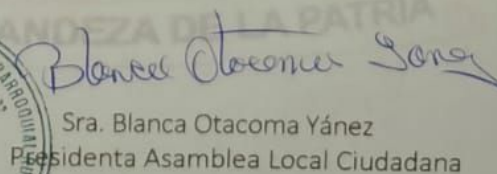 ANDEZA DE LA PATRIA
Blanca Otacoma Yanez
PARROQUIAL
Sra. Blanca Otacoma Yánez
Presidenta Asamblea Local Ciudadana